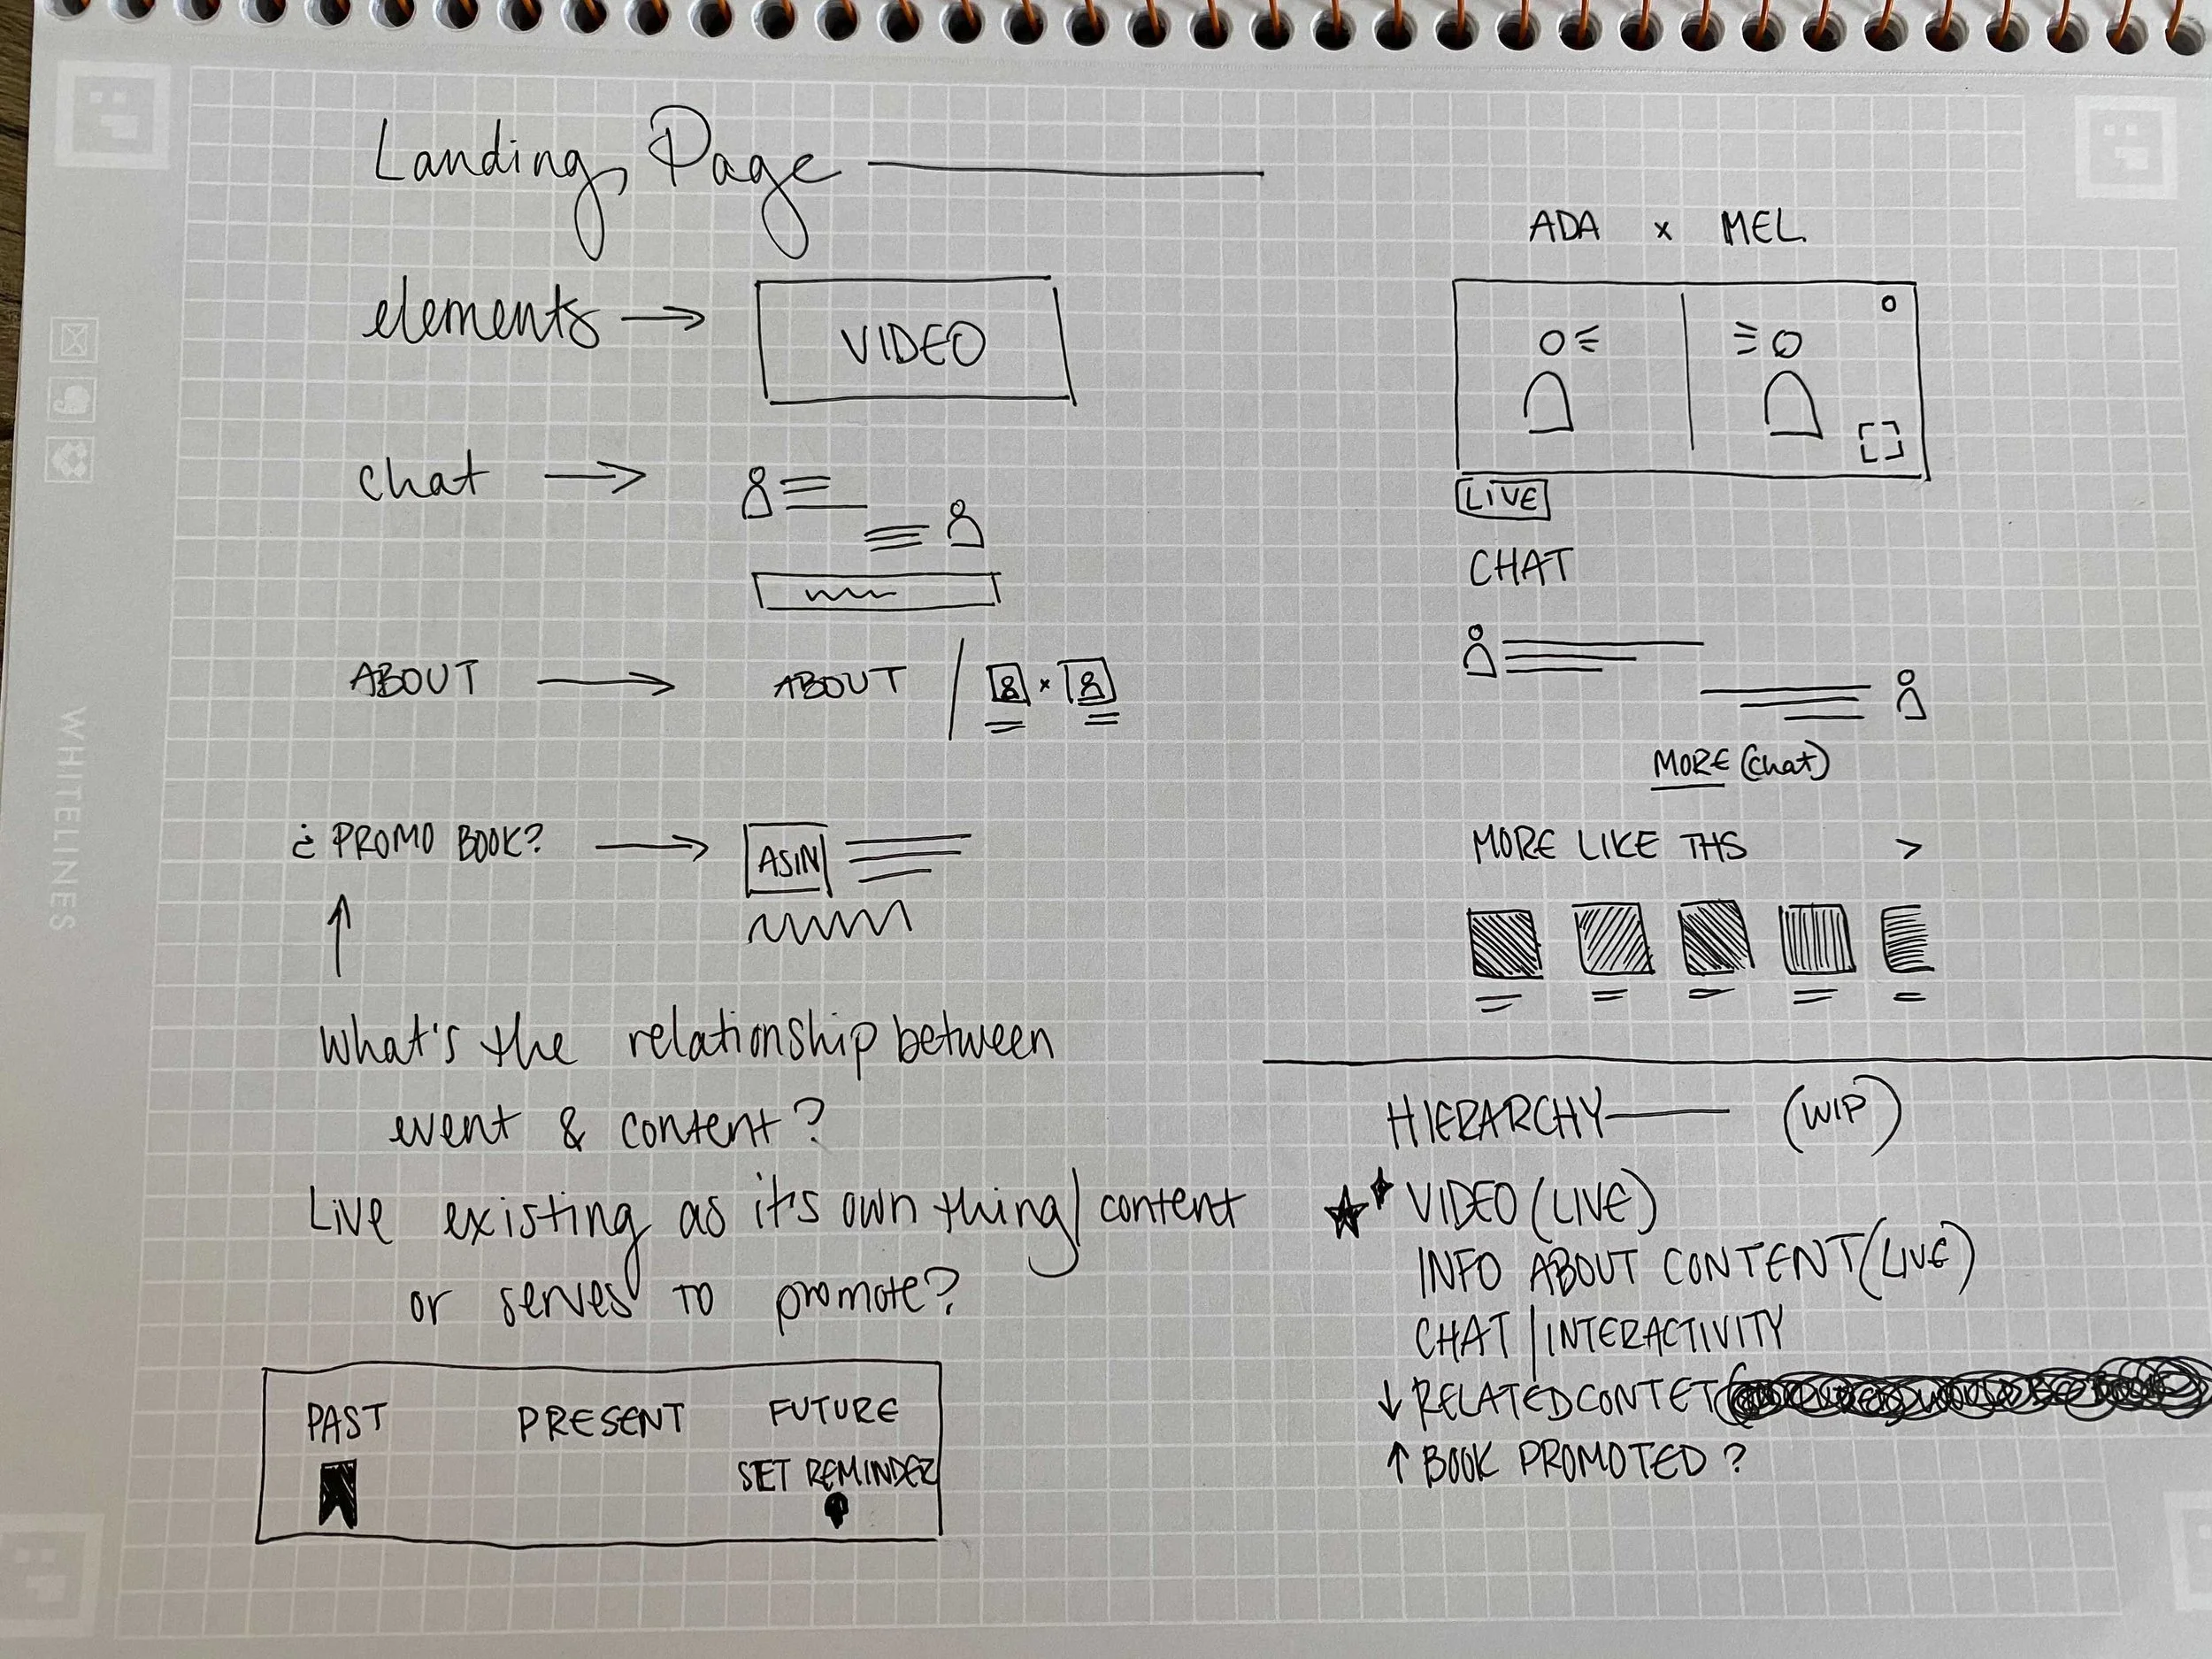 Landing Page
elements → VIDEO
chat →
ABOUT → ABOUT /
¿ PROMO BOOK? → ASIN
↑
What's the relationship between
event & content?
Live existing as it's own thing/content
or serves to promote?
PAST PRESENT FUTURE
SET REMINDER
ADA x MEL
LIVE
CHAT
MORE (chat)
MORE LIKE THS >
HIERARCHY (WIP)
VIDEO (LIVE)
INFO ABOUT CONTENT (LIVE)
CHAT | INTERACTIVITY
↓ RELATED CONTET
↑ BOOK PROMOTED ?
WHITELINES